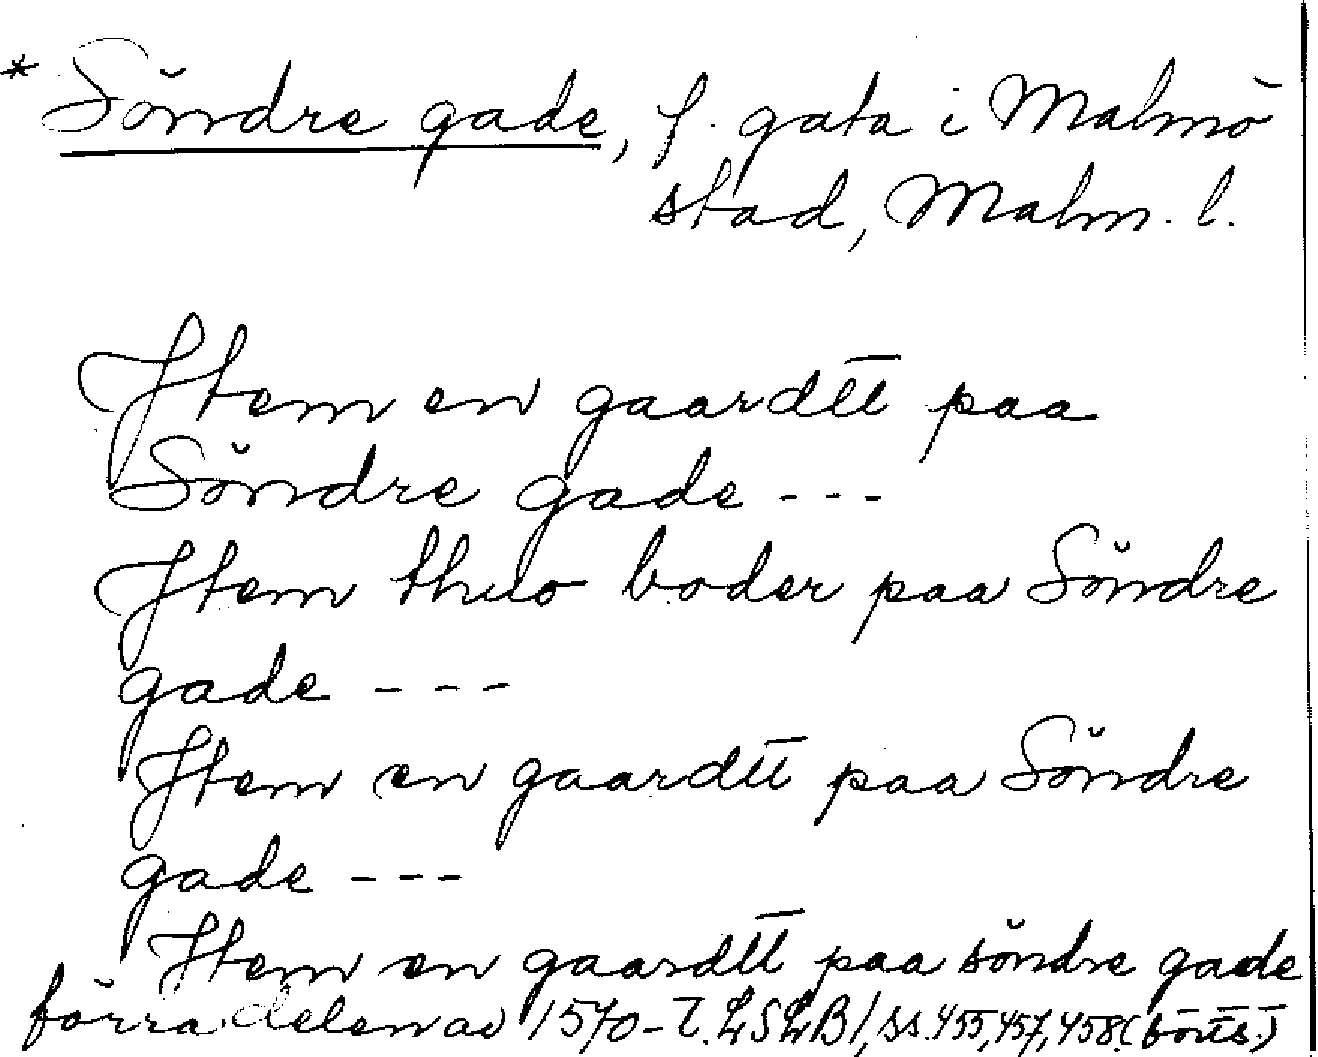 * Söndre gade, f. gata i Malmö
stad, Malm. l.
Item en gaardtt paa
Söndre gade ---
Item thuo boder paa Söndre
gade ---
Item en gaardtt paa Söndre
gade ---
Item en gaardtt paa söndre gade
förra delen av 1570-t. LSLB1, ss. 455, 457, 458.